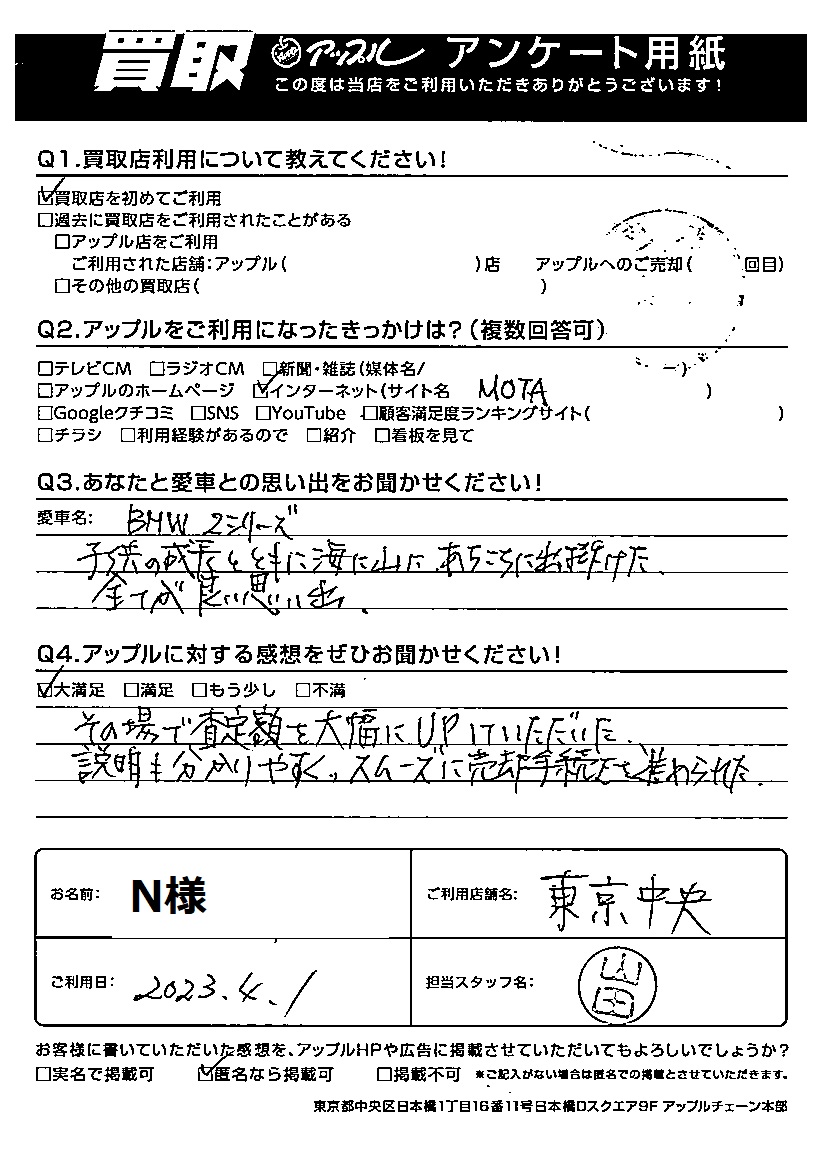 買取 アップル アンケート用紙
この度は当店をご利用いただきありがとうございます!
Q1.買取店利用について教えてください!
☑買取店を初めてご利用
□過去に買取店をご利用されたことがある
□アップル店をご利用
ご利用された店舗:アップル( )店 アップルへのご売却( 回目)
□その他の買取店( )
Q2.アップルをご利用になったきっかけは?(複数回答可)
□テレビCM □ラジオCM □新聞・雑誌(媒体名/ )
□アップルのホームページ ☑インターネット(サイト名 MOTA )
□Googleクチコミ □SNS □YouTube □顧客満足度ランキングサイト( )
□チラシ □利用経験があるので □紹介 □看板を見て
Q3.あなたと愛車との思い出をお聞かせください!
愛車名: BMW 2シリーズ
子供の成長とともに海に山に、あちこちに出掛けた。
全てが良い思い出。
Q4.アップルに対する感想をぜひお聞かせください!
☑大満足 □満足 □もう少し □不満
その場で査定額を大幅にUPしていただいた。
説明も分かりやすく、スムーズに売却手続きを進められた。
お名前: N様 ご利用店舗名: 東京中央
ご利用日: 2023.4.1 担当スタッフ名: 山田
お客様に書いていただいた感想を、アップルHPや広告に掲載させていただいてもよろしいでしょうか?
□実名で掲載可 ☑匿名なら掲載可 □掲載不可 ※ご記入がない場合は匿名での掲載とさせていただきます。
東京都中央区日本橋1丁目16番11号日本橋Dスクエア9F アップルチェーン本部